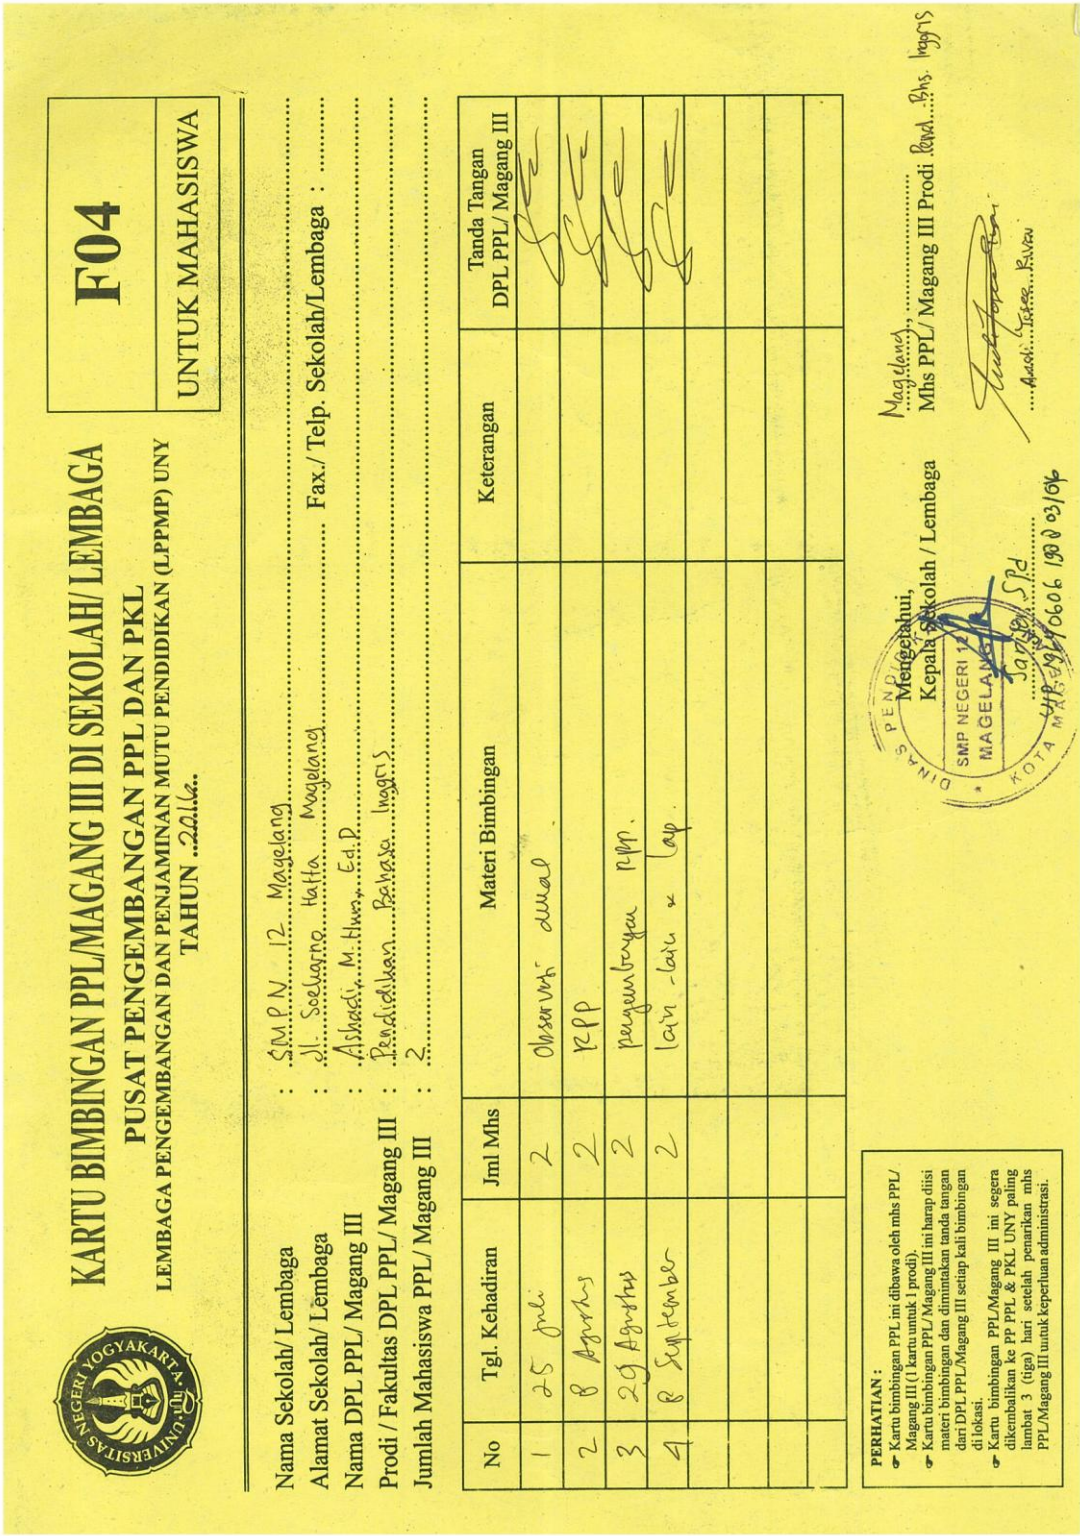 UNIVERSITAS NEGERI YOGYAKARTA
KARTU BIMBINGAN PPL/MAGANG III DI SEKOLAH/ LEMBAGA
PUSAT PENGEMBANGAN PPL DAN PKL
LEMBAGA PENGEMBANGAN DAN PENJAMINAN MUTU PENDIDIKAN (LPPMP) UNY
TAHUN 2016
F04
UNTUK MAHASISWA
Nama Sekolah/ Lembaga : SMP N 12 Magelang
Alamat Sekolah/ Lembaga : Jl. Soekarno Hatta Magelang Fax./ Telp. Sekolah/Lembaga :
Nama DPL PPL/ Magang III : Ashadi, M.Hum., Ed.D
Prodi / Fakultas DPL PPL/ Magang III : Pendidikan Bahasa Inggris
Jumlah Mahasiswa PPL/ Magang III : 2
No Tgl. Kehadiran Jml Mhs Materi Bimbingan Keterangan Tanda Tangan DPL PPL/ Magang III
1 25 Juli 2 Observasi
2 8 Agustus 2 RPP
3 29 Agustus 2 pengembangan RPP.
4 8 September 2 lain-lain & lap.
PERHATIAN :
☞ Kartu bimbingan PPL ini dibawa oleh mhs PPL/
Magang III (1 kartu untuk 1 prodi).
☞ Kartu bimbingan PPL/ Magang III ini harap diisi
materi bimbingan dan dimintakan tanda tangan
dari DPL PPL/Magang III setiap kali bimbingan
di lokasi.
☞ Kartu bimbingan PPL/Magang III ini segera
dikembalikan ke PP PPL & PKL UNY paling
lambat 3 (tiga) hari setelah penarikan mhs
PPL/Magang III untuk keperluan administrasi.
Mengetahui,
Kepala Sekolah / Lembaga
DINAS PENDIDIKAN
SMP NEGERI 12
MAGELANG
KOTA MAGELANG
S.Pd
Magelang,
Mhs PPL/ Magang III Prodi Pend. Bhs. Inggris